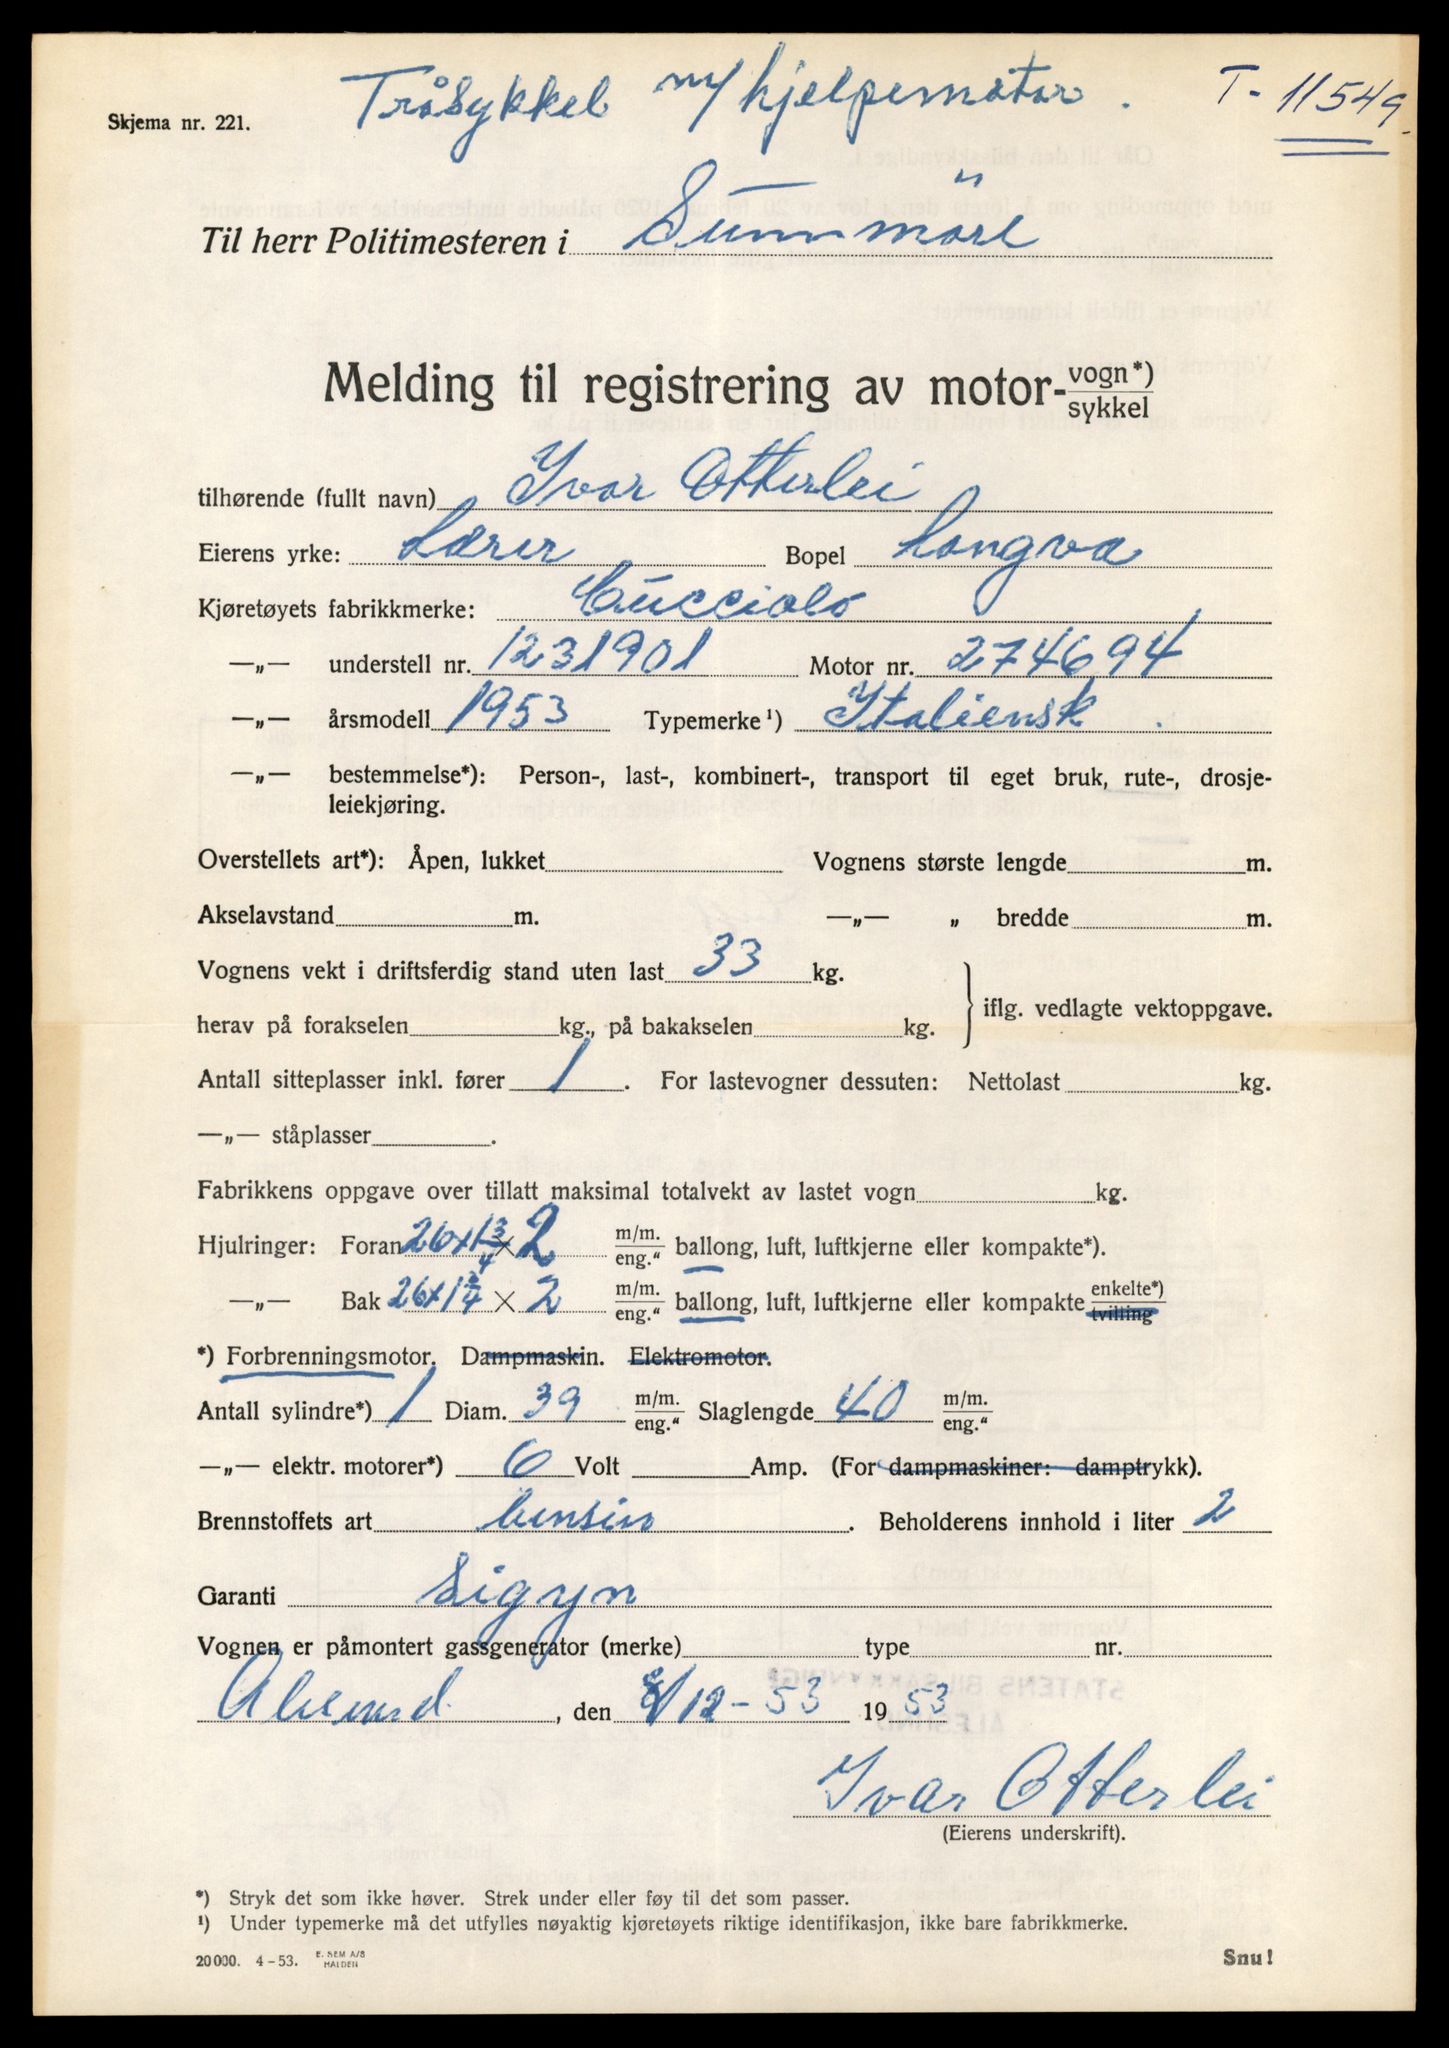 Tråsykkel m/hjelpemotor. T-11549.
Skjema nr. 221.
Til herr Politimesteren i Sunnmöre
Melding til registrering av motor-vogn*)
sykkel
tilhørende (fullt navn) Ivar Otterlei
Eierens yrke: Lærer Bopel Longva
Kjøretøyets fabrikkmerke: Cucciolo
—„— understell nr. 1231901 Motor nr. 274694
—„— årsmodell 1953 Typemerke¹) Italiensk.
—„— bestemmelse*): Person-, last-, kombinert-, transport til eget bruk, rute-, drosje-
leiekjøring.
Overstellets art*): Åpen, lukket m. Vognens største lengde m.
Akselavstand m. —„— „ bredde m.
Vognens vekt i driftsferdig stand uten last 33 kg.
herav på forakselen kg., på bakakselen kg. iflg. vedlagte vektoppgave.
Antall sitteplasser inkl. fører 1. For lastevogner dessuten: Nettolast kg.
—„— ståplasser.
Fabrikkens oppgave over tillatt maksimal totalvekt av lastet vogn kg.
Hjulringer: Foran 26x1 3/4 x 2 m/m. eng.“ ballong, luft, luftkjerne eller kompakte*).
—„— Bak 26x1 3/4 x 2 m/m. eng.“ ballong, luft, luftkjerne eller kompakte enkelte*) tvilling
*) Forbrenningsmotor. Dampmaskin. Elektromotor.
Antall sylindre*) 1 Diam. 39 m/m. eng.“ Slaglengde 40 m/m. eng.“
—„— elektr. motorer*) 6 Volt Amp. (For dampmaskiner: damptrykk).
Brennstoffets art bensin. Beholderens innhold i liter 2
Garanti Sigyn
Vognen er påmontert gassgenerator (merke) type nr.
Alesund, den 8/12-53 1953
Ivar Otterlei
(Eierens underskrift).
*) Stryk det som ikke høver. Strek under eller føy til det som passer.
¹) Under typemerke må det utfylles nøyaktig kjøretøyets riktige identifikasjon, ikke bare fabrikkmerke.
20000. 4-53. E. SEM A/S
HALDEN
Snu!